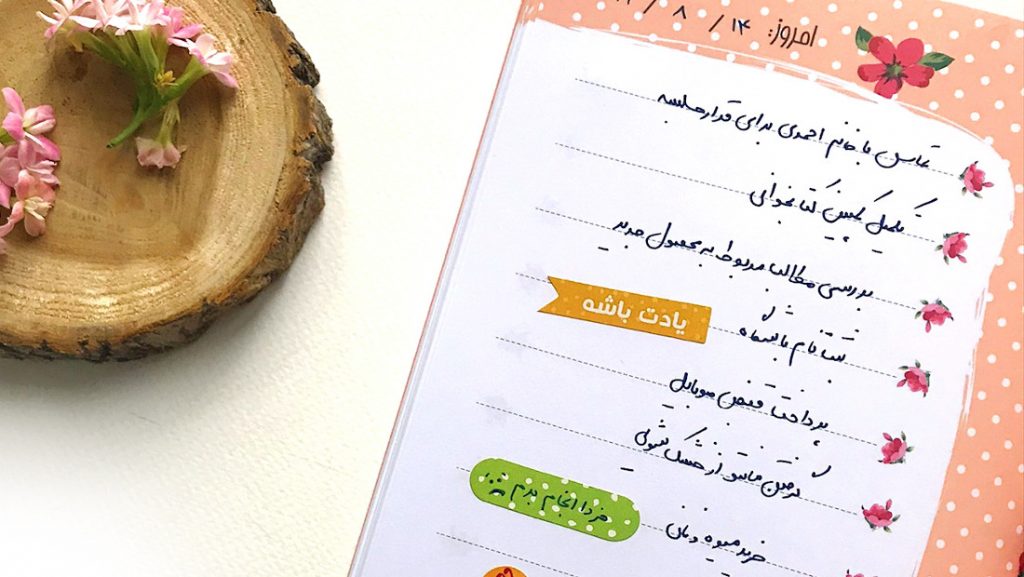 امروز: ۱۴ / ۸ /
تماس با خانم احمدی برای قرار جلسه
تکمیل کمپین کتابخوانی
بررسی مطالب مربوط به محصول جدید
ثبت نام باشگاه
یادت باشه
پرداخت قبض موبایل
گرفتن مانتو از خشک شویی
خرید میوه و نان
فردا انجام بدم